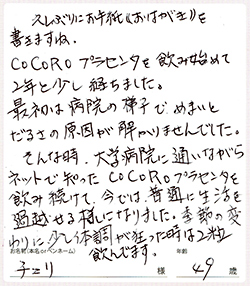 久しぶりにお手紙《おはがき》を
書きますね。
CoCoROプラセンタを飲み始めて
2年と少し経ちました。
最初は病院の梯子で、めまいと
だるさの原因が解かりませんでした。
そんな時、大学病院に通いながら
ネットで知ったCoCoROプラセンタを
飲み続けて、今では普通に生活を
過越せる様になりました。季節の変
わりに少し体調が狂った時は2粒
飲んでます。
お名前(本名orペンネーム)
チエリ 様
年齢
49 歳